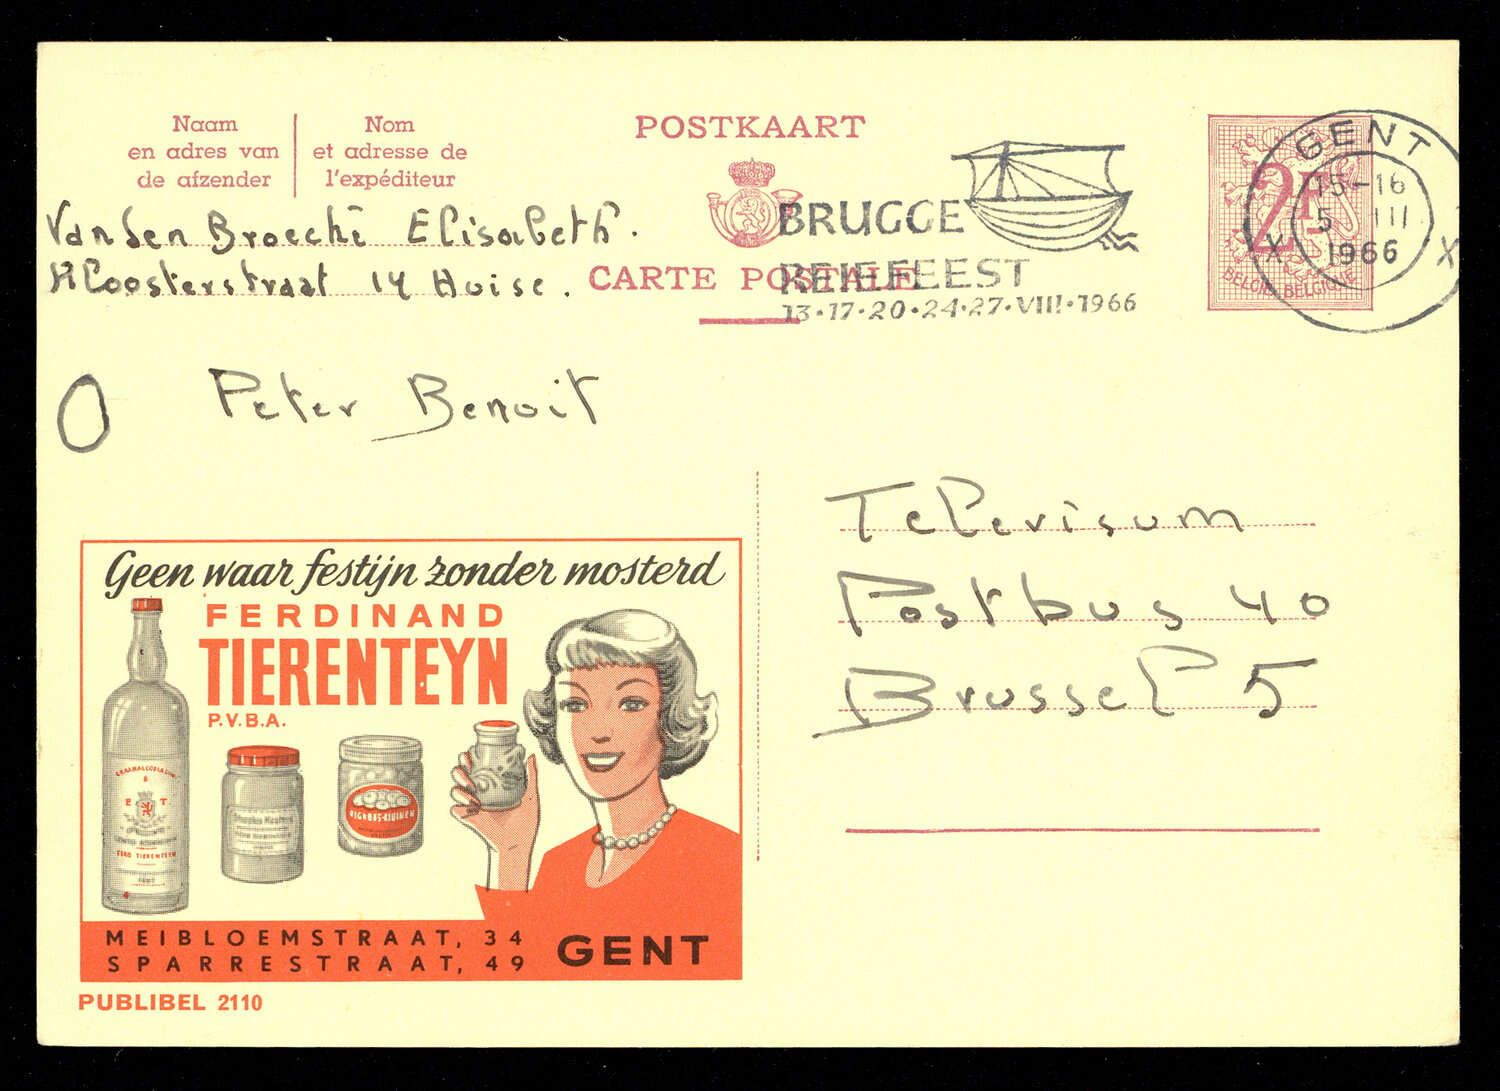 Naam
en adres van
de afzender
Nom
et adresse de
l'expéditeur
POSTKAART
CARTE POSTALE
BRUGGE
REIEFEEST
13·17·20·24·27·VIII·1966
GENT
15-16
5 III
1966
X X
2F
BELGIË BELGIQUE
Vanden Broecke Elisabeth.
Kloosterstraat 14 Huise.
O Peter Benoit
Televisum
Postbus 40
Brussel 5
Geen waar festijn zonder mosterd
FERDINAND
TIERENTEYN
P.V.B.A.
E T.
FERD TIERENTEYN
GENT
MEIBLOEMSTRAAT, 34
SPARRESTRAAT, 49
GENT
PUBLIBEL 2110